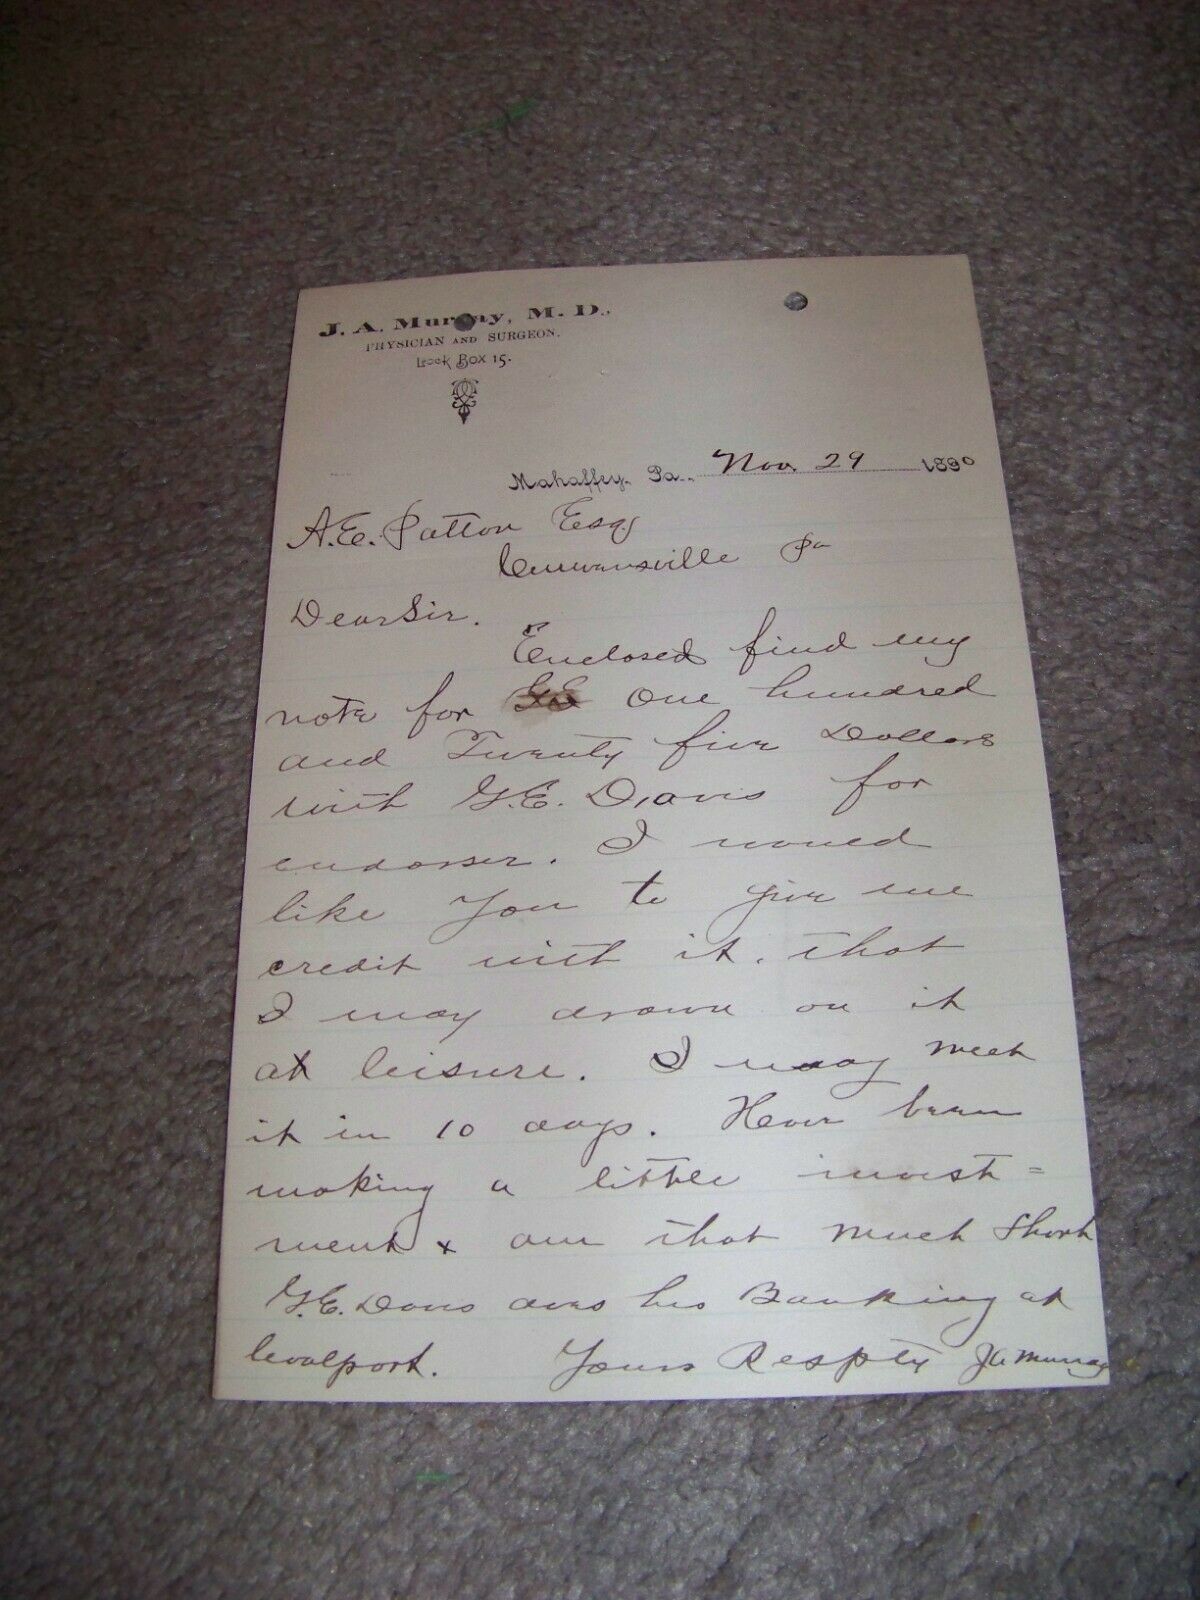 J. A. Murray, M. D.,
PHYSICIAN AND SURGEON.
Lock Box 15.
Mahaffey, Pa., Nov. 29 1890
A. E. Patton Esq
Curwensville Pa
Dear Sir.
Enclosed find my
note for GE One hundred
and Twenty five Dollars
with G. E. Davis for
endorser. I would
like You to give me
credit with it, that
I may drawn on it
at leisure. I may meet
it in 10 days. Have been
making a little invest=
ment & am that much Short
G. E. Davis does his Banking at
Coalport. Yours Respty JA Murray